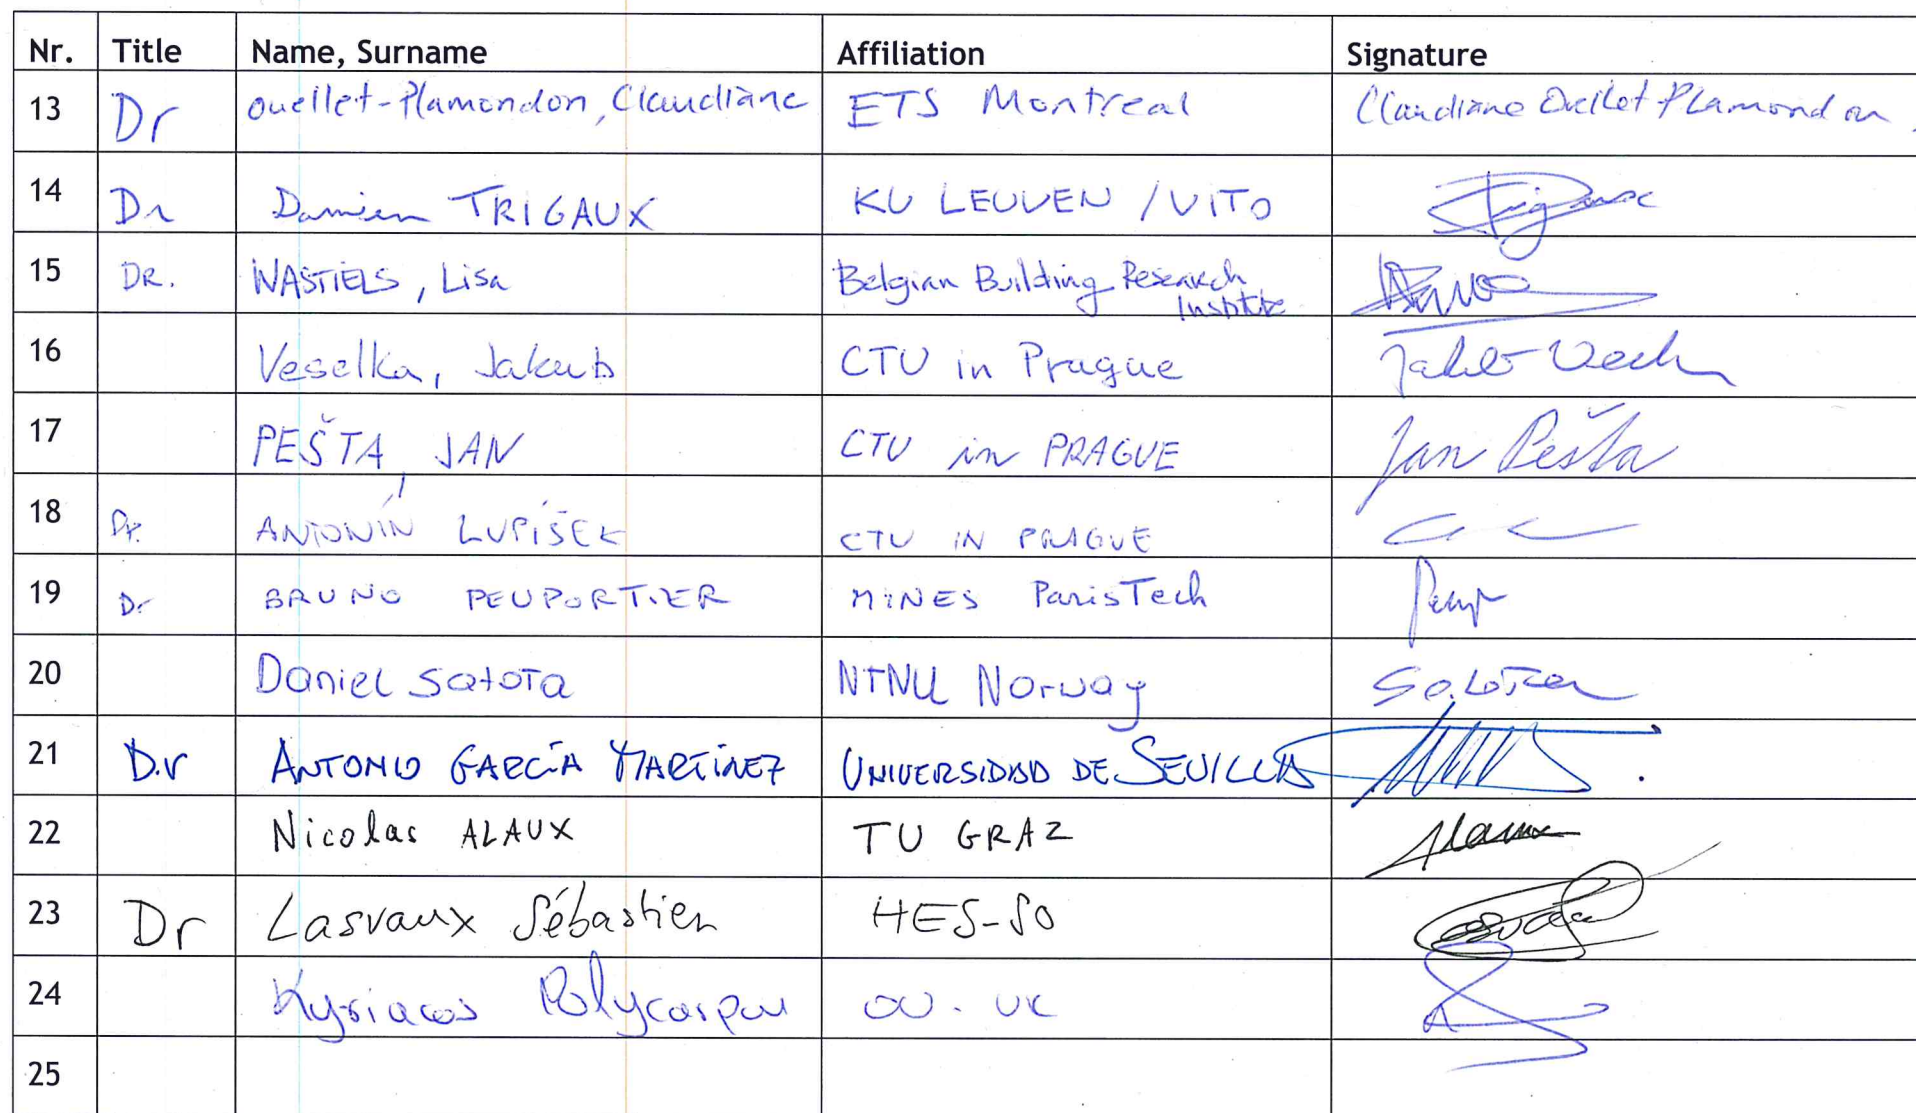 Nr. Title Name, Surname Affiliation Signature
13 Dr Ouellet-Plamondon, Claudiane ETS Montreal Claudiane Ouellet-Plamondon
14 Dr Damien TRIGAUX KU LEUVEN / VITO Trigaux
15 DR. WASTIELS, Lisa Belgian Building Research
Institute
16 Veselka, Jakub CTU in Prague
17 PEŠTA, JAN CTU in PRAGUE Jan Pešta
18 Dr. ANTONÍN LUPÍŠEK CTU IN PRAGUE
19 Dr BRUNO PEUPORTIER MINES ParisTech
20 Daniel Satola NTNU Norway Satola
21 D.r ANTONIO GARCÍA MARTÍNEZ UNIVERSIDAD DE SEVILLA
22 Nicolas ALAUX TU GRAZ Alaux
23 Dr Lasvaux Sébastien HES-SO
24 Kyriacos Polycarpou OU. UK
25